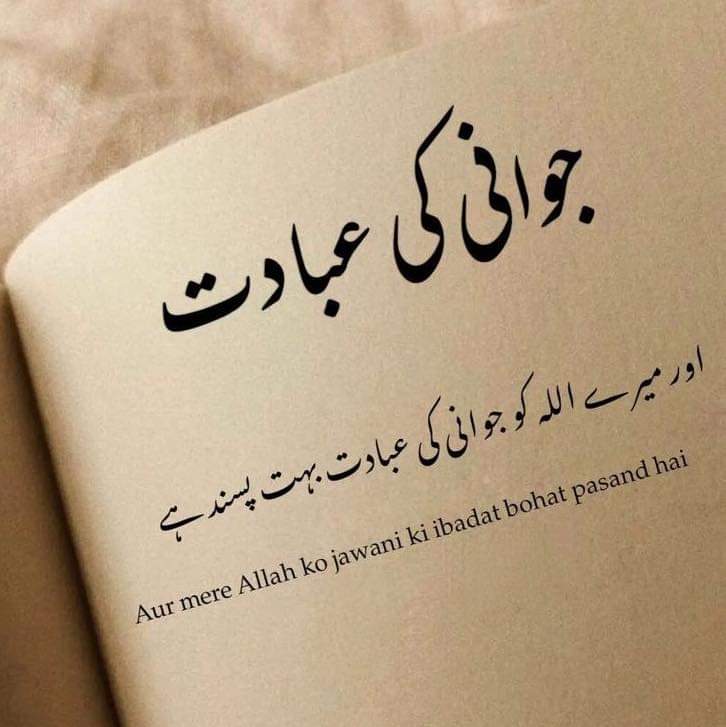 جوانی کی عبادت
اور میرے اللہ کو جوانی کی عبادت بہت پسند ہے
Aur mere Allah ko jawani ki ibadat bohat pasand hai